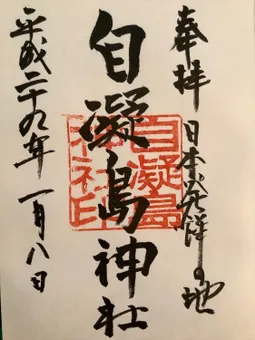 奉拝 日本発祥の地
自凝島神社
自凝島神社印
平成二十九年 一月八日